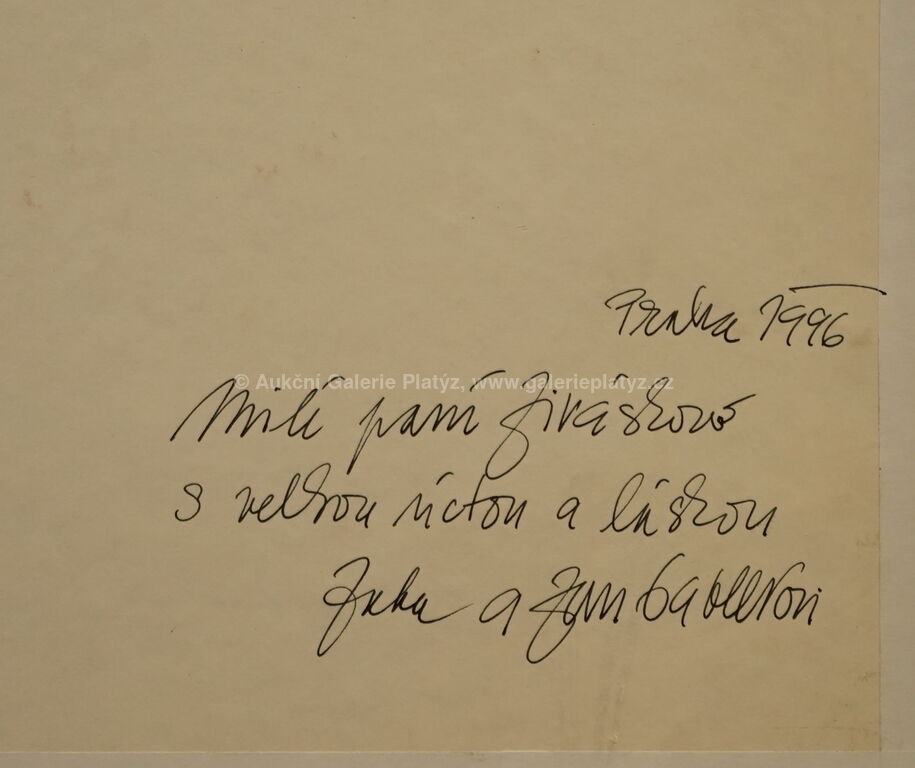 Praha 1996
© Aukční Galerie Platýz, www.galerieplatyz.cz
Milé paní Jiráskové
s velkou úctou a láskou
a Jan